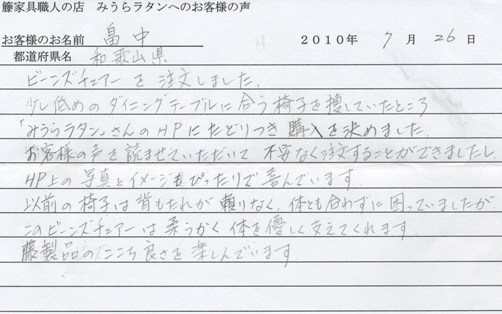 籐家具職人の店　みうらラタンへのお客様の声
お客様のお名前　畠中　2010年 7月 26日
都道府県名　和歌山県
ビーンズチェアーを注文しました。
少し低めのダイニングテーブルに合う椅子を捜していたところ
「みうらラタン」さんのHPにたどりつき購入を決めました。
お客様の声を読ませていただいて 不安なく注文することができましたし
HP上の写真とイメージもぴったりで喜んでいます。
以前の椅子は背もたれが頼りなく、体とも合わずに困っていましたが
このビーンズチェアーは柔らかく体を優しく支えてくれます。
藤製品のここち良さを楽しんでいます。